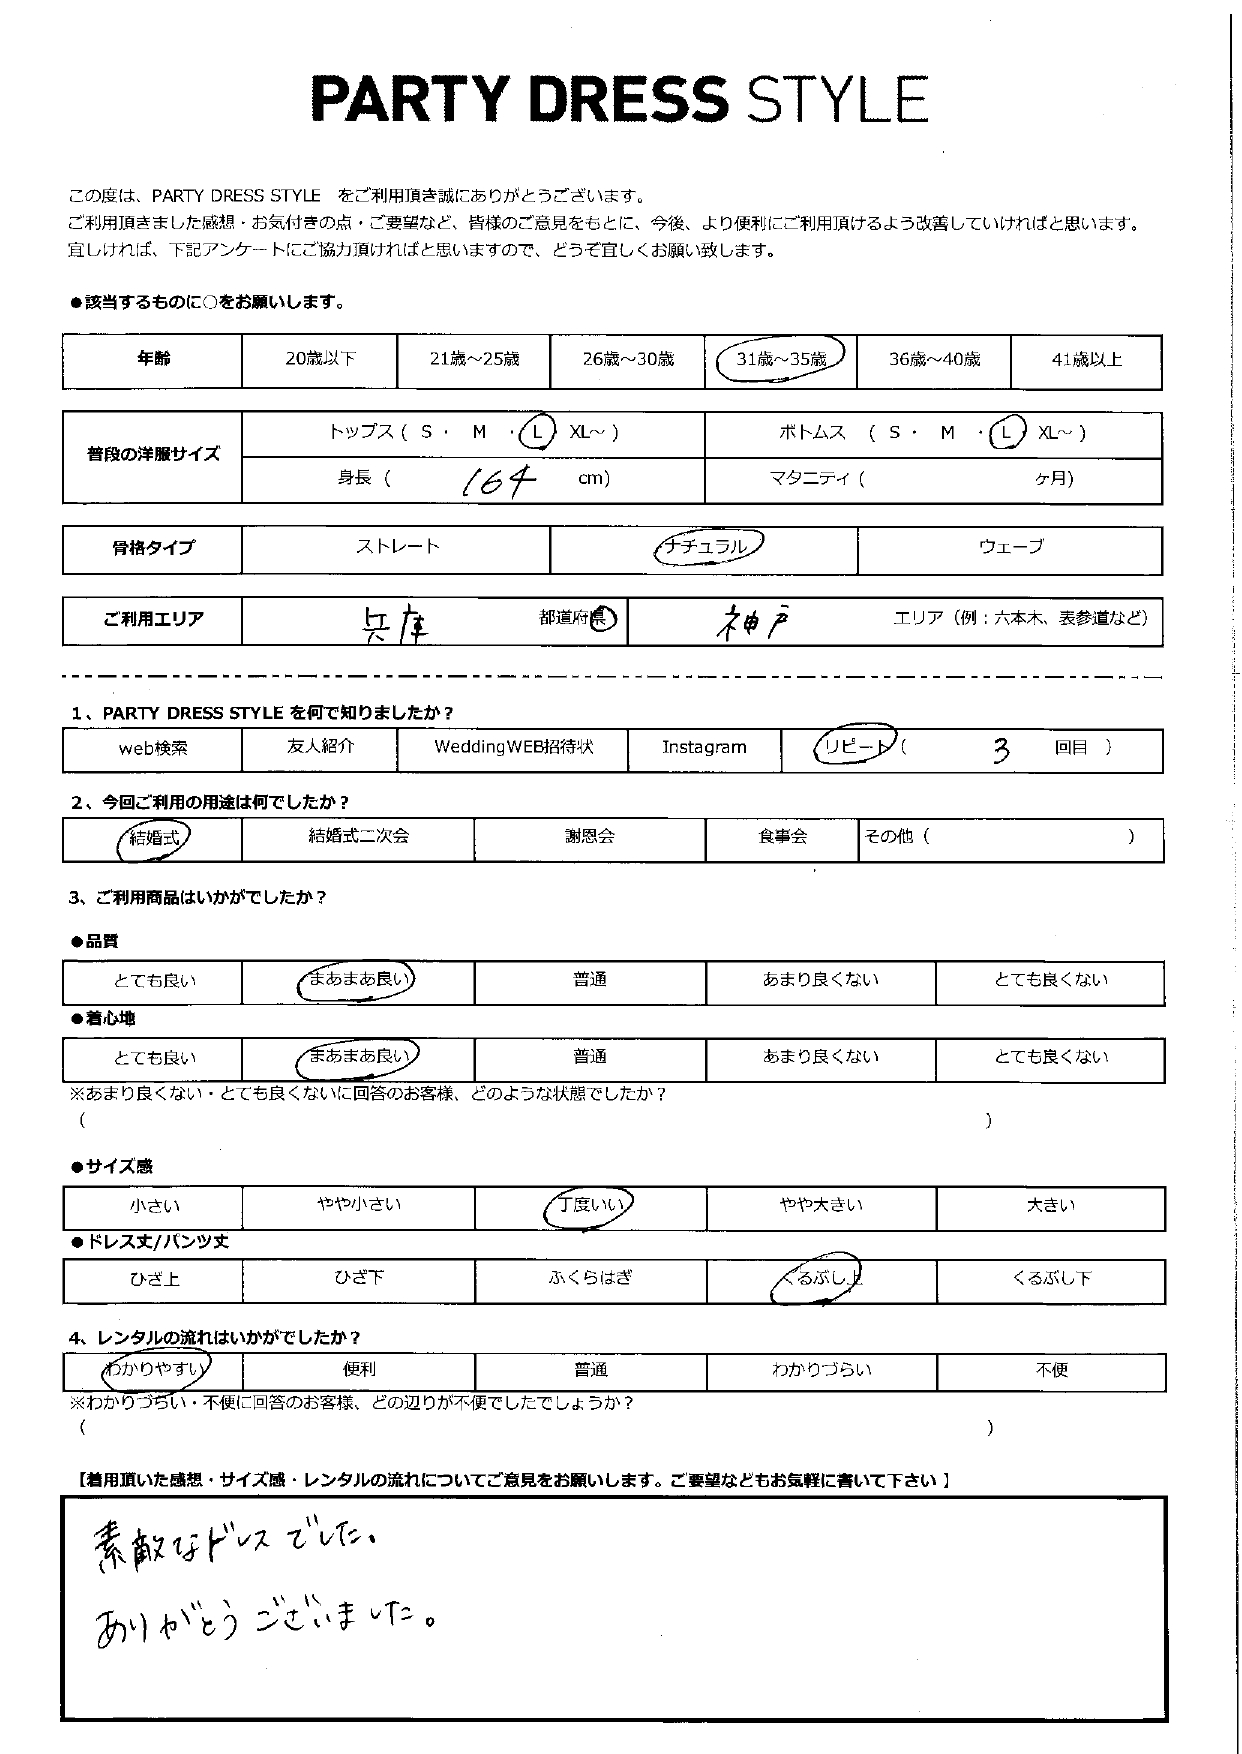 PARTY DRESS STYLE
この度は、PARTY DRESS STYLE をご利用頂き誠にありがとうございます。
ご利用頂きました感想・お気付きの点・ご要望など、皆様のご意見をもとに、今後、より便利にご利用頂けるよう改善していければと思います。
宜しければ、下記アンケートにご協力頂ければと思いますので、どうぞ宜しくお願い致します。
●該当するものに○をお願いします。
年齢 20歳以下 21歳～25歳 26歳～30歳 31歳～35歳 36歳～40歳 41歳以上
普段の洋服サイズ トップス ( S ・ M ・ L XL～ ) ボトムス ( S ・ M ・ L XL～ )
身長 ( 164 cm) マタニティ ( ヶ月)
骨格タイプ ストレート ナチュラル ウェーブ
ご利用エリア 兵庫 都道府県 神戸 エリア（例：六本木、表参道など）
1、PARTY DRESS STYLE を何で知りましたか？
web検索 友人紹介 WeddingWEB招待状 Instagram リピート ( 3 回目 )
2、今回ご利用の用途は何でしたか？
結婚式 結婚式二次会 謝恩会 食事会 その他 ( )
3、ご利用商品はいかがでしたか？
●品質
とても良い まあまあ良い 普通 あまり良くない とても良くない
●着心地
とても良い まあまあ良い 普通 あまり良くない とても良くない
※あまり良くない・とても良くないに回答のお客様、どのような状態でしたか？
( )
●サイズ感
小さい やや小さい 丁度いい やや大きい 大きい
●ドレス丈/パンツ丈
ひざ上 ひざ下 ふくらはぎ くるぶし上 くるぶし下
4、レンタルの流れはいかがでしたか？
わかりやすい 便利 普通 わかりづらい 不便
※わかりづらい・不便に回答のお客様、どの辺りが不便でしたでしょうか？
( )
【着用頂いた感想・サイズ感・レンタルの流れについてご意見をお願いします。ご要望などもお気軽に書いて下さい】
素敵なドレスでした。
ありがとうございました。